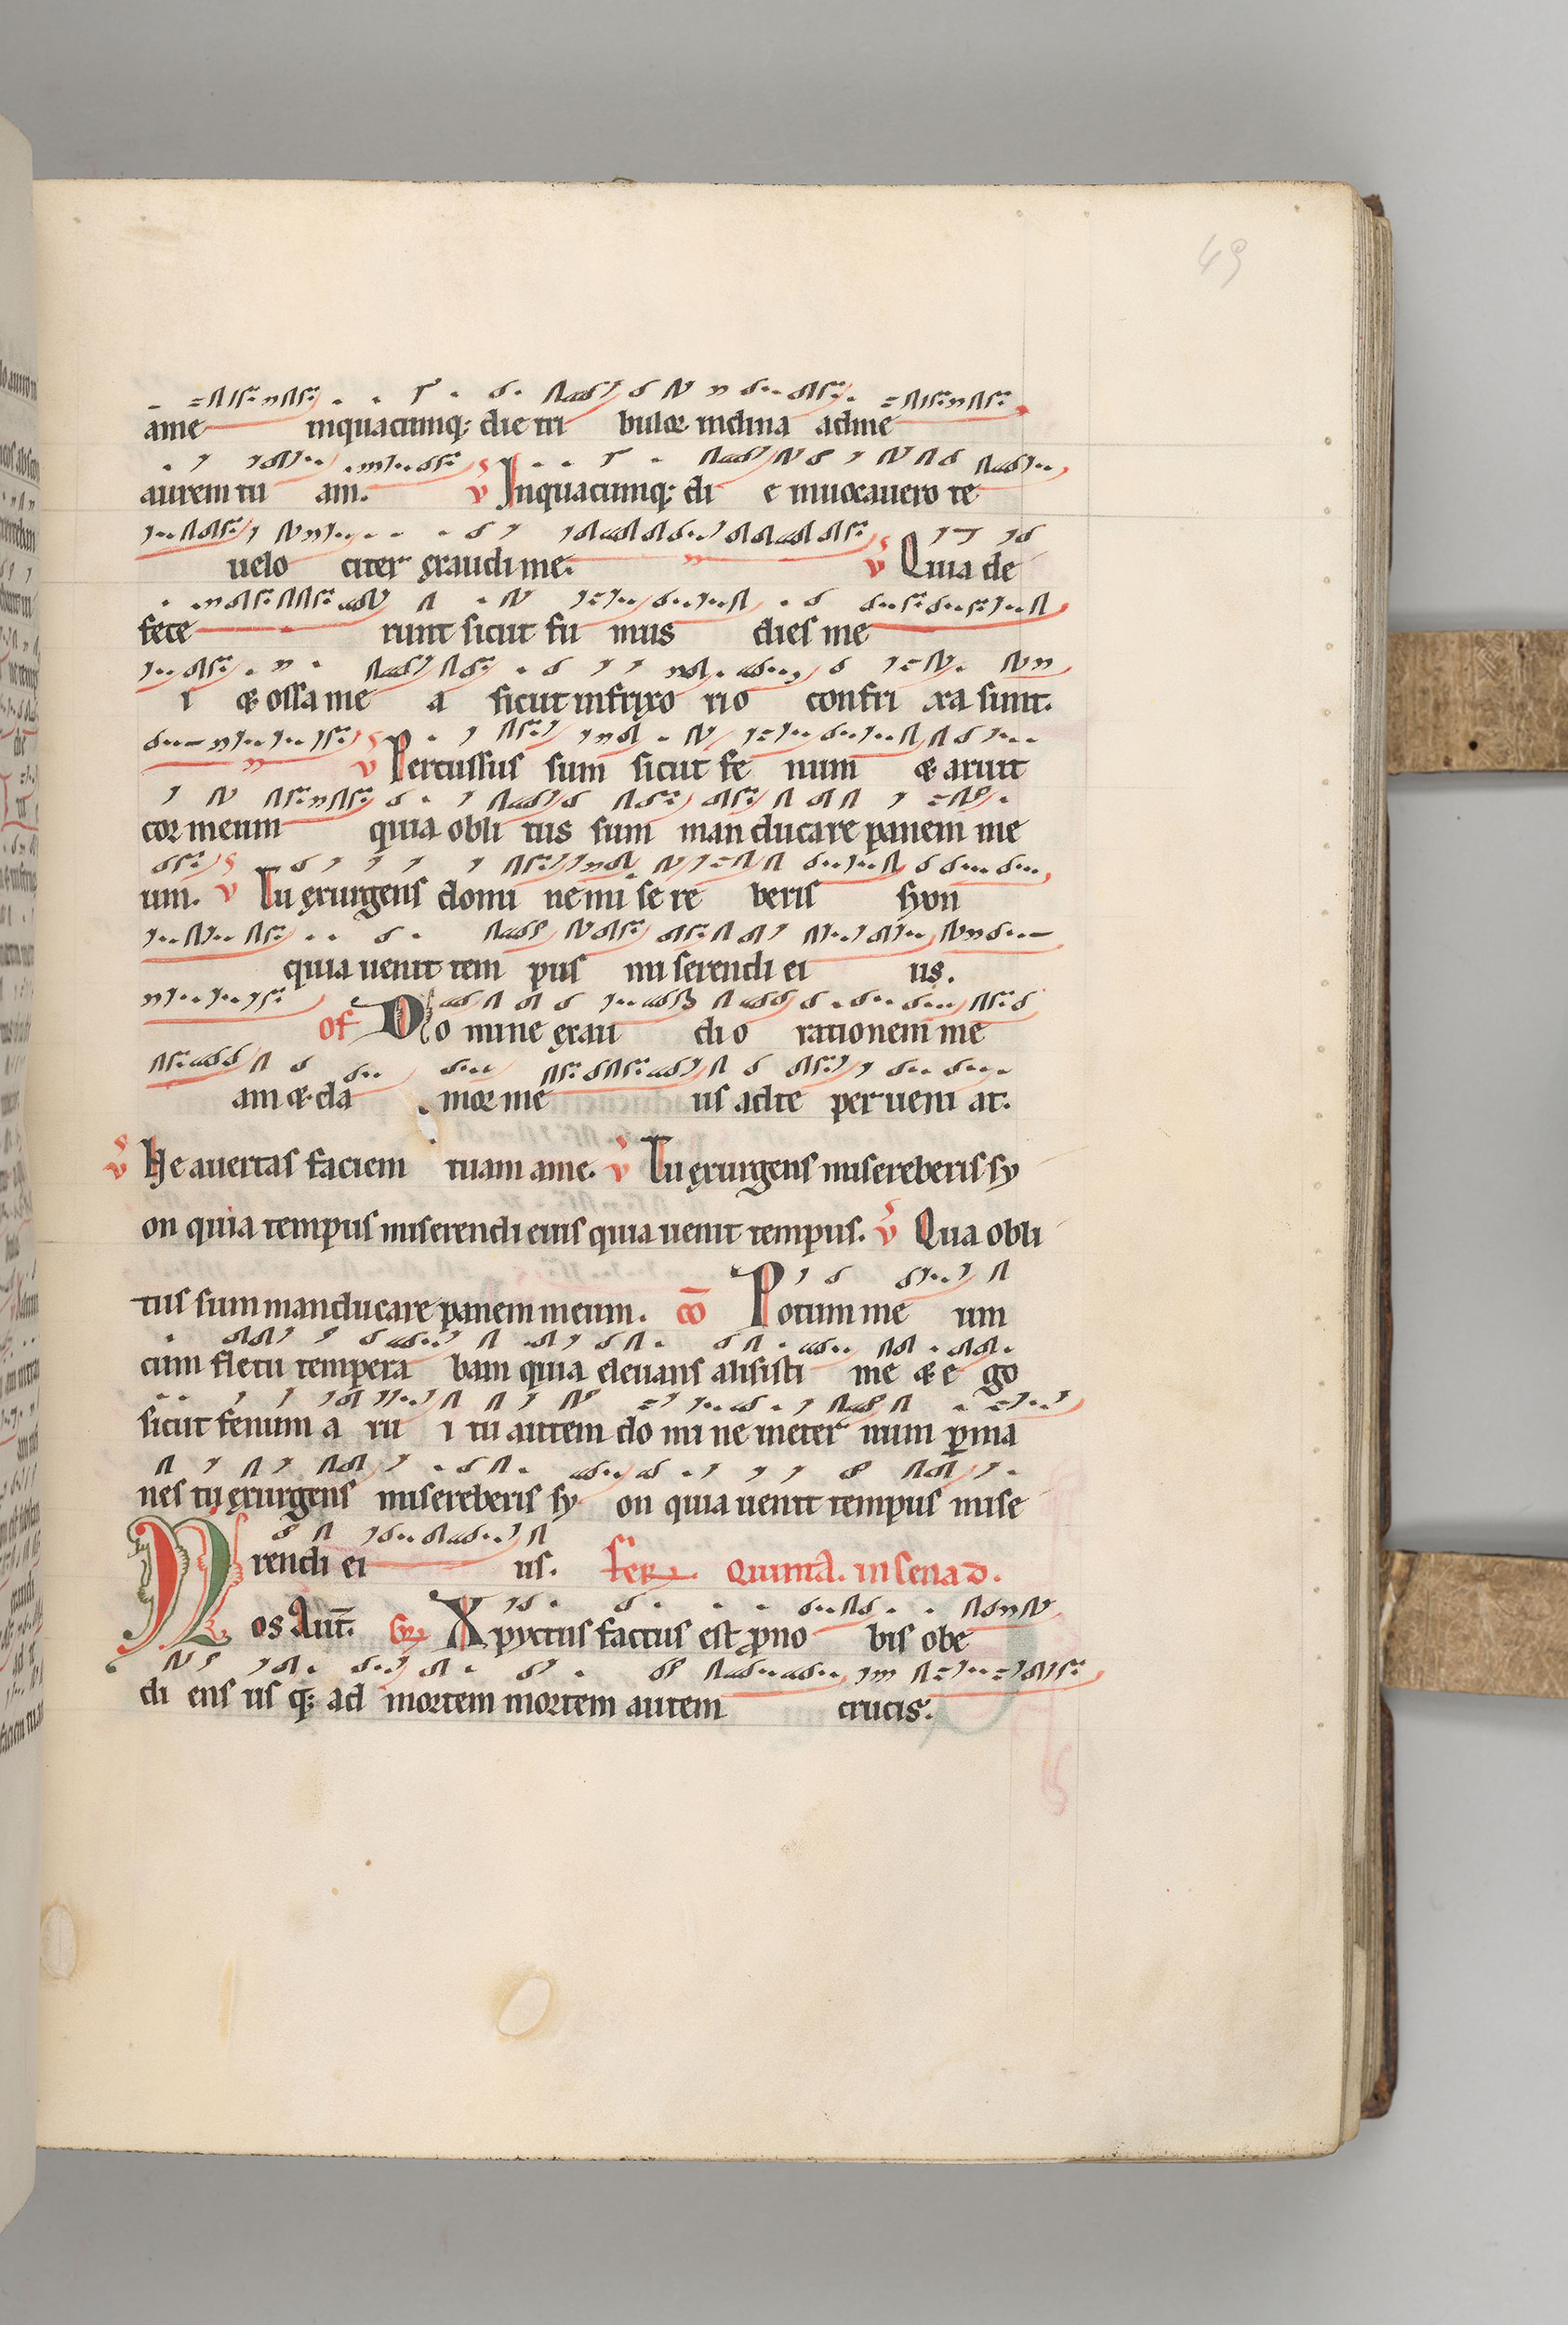 49
ame inquacumq; die tri bulor inclina adme
aurem tu am. v Inquacumq; di e inuocauero te
uelo citer exaudi me. v Quia de
fece runt sicut fu mus dies me
i & ossa me a sicut infrixo rio confri xa sunt.
v Percussus sum sicut fe num & aruit
cor meum quia obli tus sum man ducare panem me
um. v Tu exurgens domi ne mi se re beris syon
quia uenit tem pus mi serendi ei us.
of Do mine exau di o rationem me
am & cla mor me us adte perueni at.
v Ne auertas faciem tuam ame. v Tu exurgens misereberis sy
on quia tempus miserendi eius quia uenit tempus. v Qua obli
tus sum manducare panem meum. cō Potum me um
cum fletu tempera bam quia eleuans alisisti me & e go
sicut fenum a ru i tu autem do mi ne ineter num p̄ma
nes tu exurgens misereberis sy on quia uenit tempus mise
rendi ei us. Fer Quinta. in cena D.
Nos Aut̄. Gr Xpyctus factus est pro no bis obe
di ens us q; ad mortem mortem autem crucis.